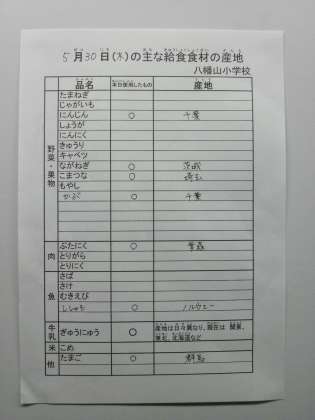 5月30日(木)の主な給食食材の産地
八幡山小学校
品名 本日使用したもの 産地
野菜・果物
たまねぎ
じゃがいも
にんじん ○ 千葉
しょうが
にんにく
きゅうり
キャベツ
ながねぎ ○ 茨城
こまつな ○ 埼玉
もやし
かぶ ○ 千葉
肉
ぶたにく ○ 青森
とりがら
とりにく
魚
さば
さけ
むきえび
ししゃも ○ ノルウェー
牛乳 ぎゅうにゅう ○ 産地は日々異なり、現在は 関東、東北、北海道など
米 こめ
他 たまご ○ 群馬